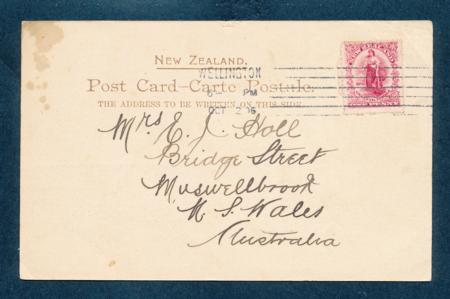 NEW ZEALAND.
WELLINGTON
6— PM
Post Card–Carte Postale.
OCT 2 06
THE ADDRESS TO BE WRITTEN ON THIS SIDE
Mrs E. J. Holl
Bridge Street
Muswellbrook
N. S. Wales
Australia